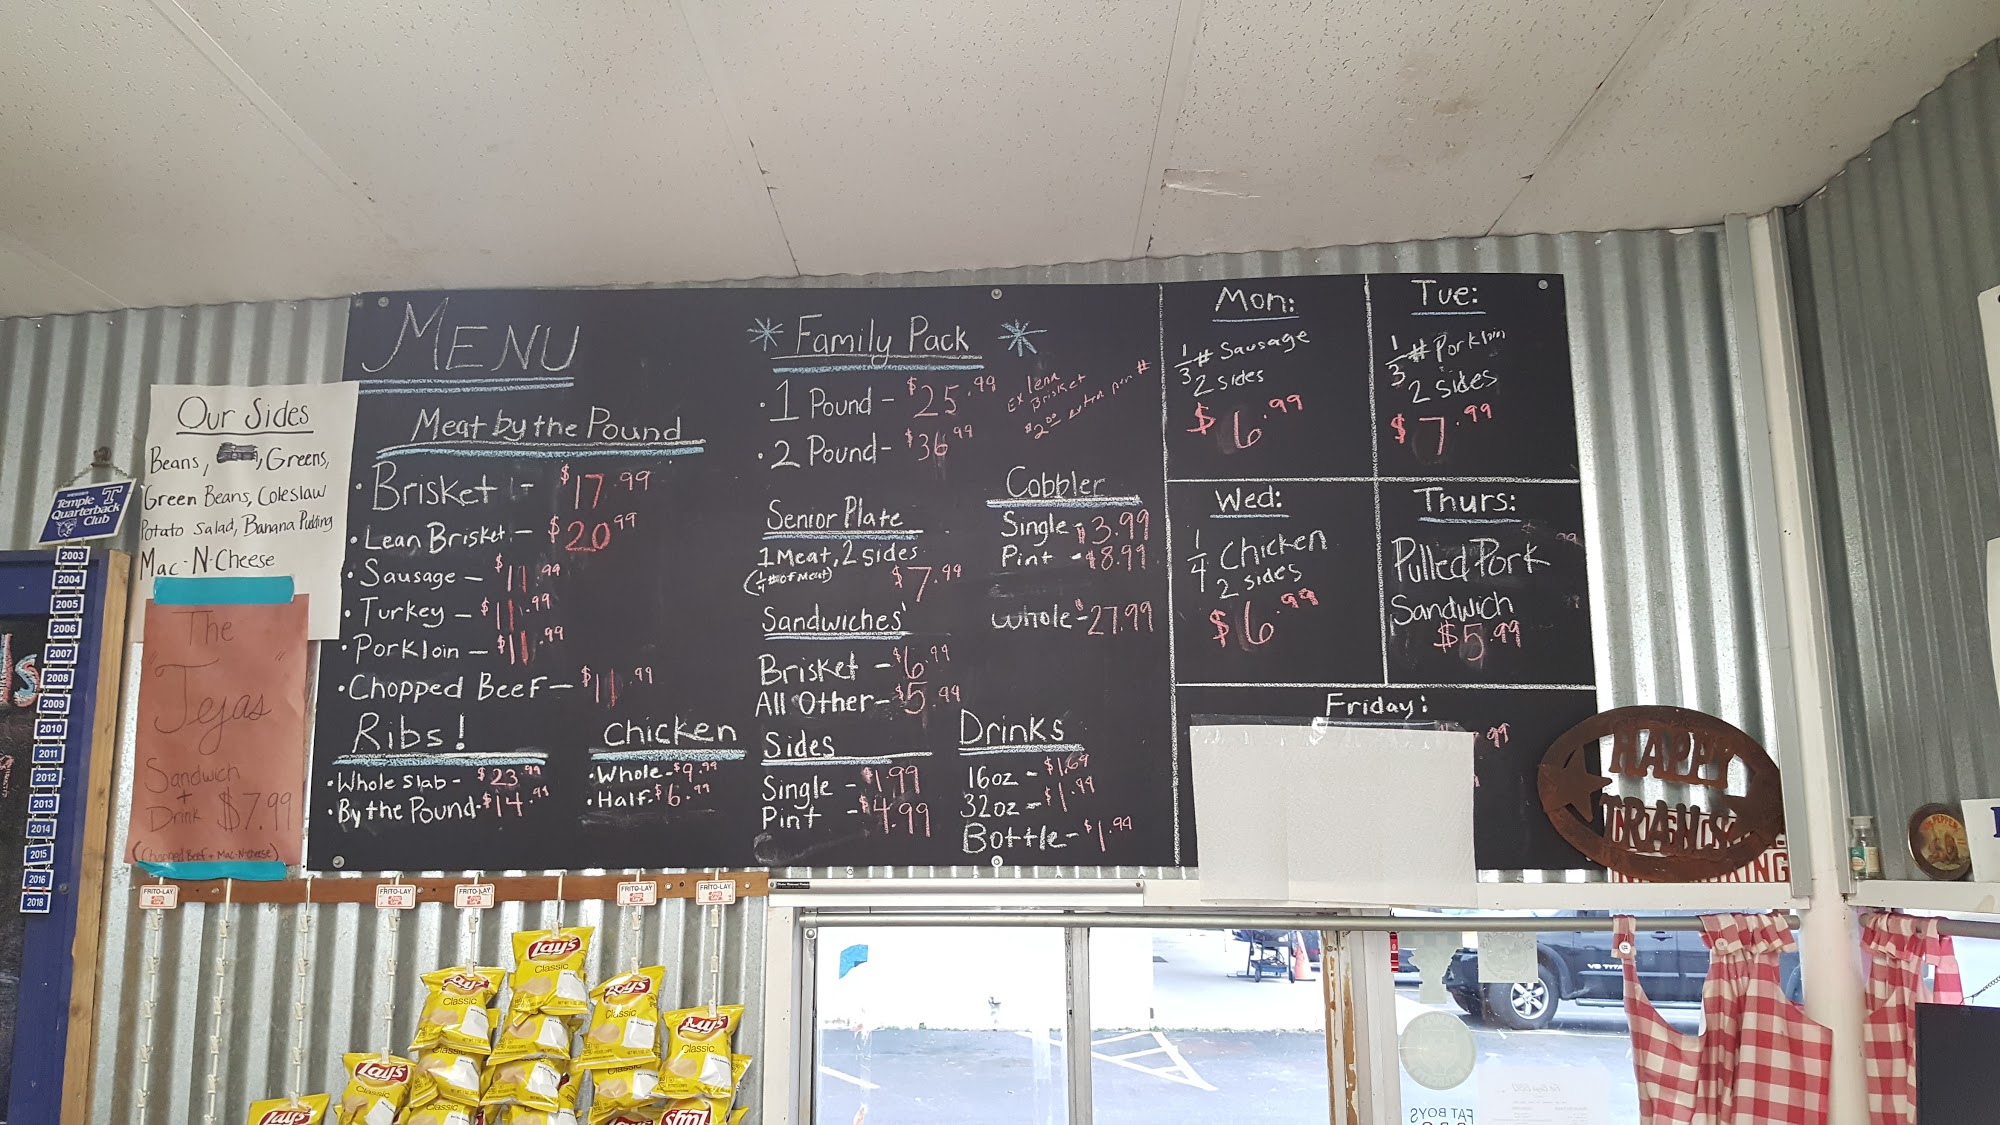 MENU
Meat by the Pound
• Brisket - $17.99
• Lean Brisket - $20.99
• Sausage - $11.99
• Turkey - $11.99
• Porkloin - $11.99
• Chopped Beef - $11.99
Ribs!
• Whole Slab - $23.99
• By the Pound - $14.99
Chicken
• Whole - $9.99
• Half - $6.99
Family Pack
• 1 Pound - $25.99
• 2 Pound - $36.99
EX lean
Brisket
$2.00 extra per #
Senior Plate
1 Meat, 2 sides
(1/4 # of Meat) $7.99
Sandwiches
Brisket - $6.99
All Other - $5.99
Sides
Single - $1.99
Pint - $4.99
Cobbler
Single - $3.99
Pint - $8.99
Whole - $27.99
Drinks
16oz - $1.69
32oz - $1.99
Bottle - $1.99
Mon:
1/3 # Sausage
2 sides
$6.99
Tue:
1/3 # Porkloin
2 sides
$7.99
Wed:
1/4 Chicken
2 sides
$6.99
Thurs:
Pulled Pork
Sandwich
$5.99
Friday:
.99
Our Sides
Beans, Greens,
Green Beans, Coleslaw
Potato Salad, Banana Pudding
Mac-N-Cheese
The
"Tejas"
Sandwich
+
Drink $7.99
(Chopped Beef + Mac-N-Cheese)
Temple
Quarterback
Club
2003
2004
2005
2006
2007
2008
2009
2010
2011
2012
2013
2014
2015
2016
2018
HAPPY
TRANS
KING
FRITO-LAY
FRITO-LAY
FRITO-LAY
FRITO-LAY
FRITO-LAY
Lay's
Classic
Lay's
Classic
Lay's
Classic
Lay's
Classic
Lay's
Classic
Lay's
Lay's
V8 TITAN
FAT BOYS